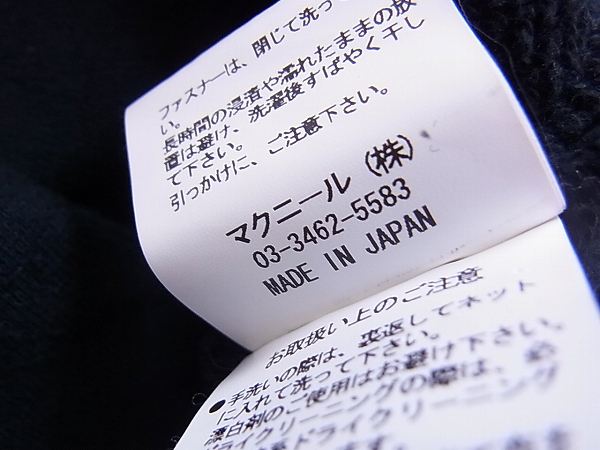 ファスナーは、閉じて洗っ
い。
長時間の浸漬や濡れたままの放
置は避け、洗濯後すばやく干し
て下さい。
引っかけに、ご注意下さい。
マクニール(株)
03-3462-5583
MADE IN JAPAN
お取扱い上のご注意
●手洗いの際は、裏返してネット
に入れて洗って下さい。
漂白剤のご使用はお避け下さい。
ドライクリーニングの際は、必
ドライクリーニング